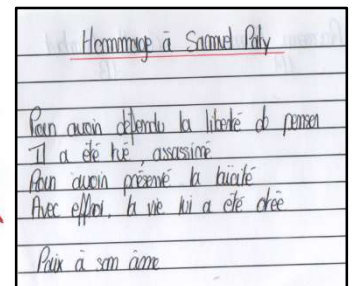 Hommage à Samuel Paty
Pour avoir défendu la liberté de penser
Il a été tué, assassiné
Pour avoir préservé la laïcité
Avec effroi, la vie lui a été ôtée
Paix à son âme